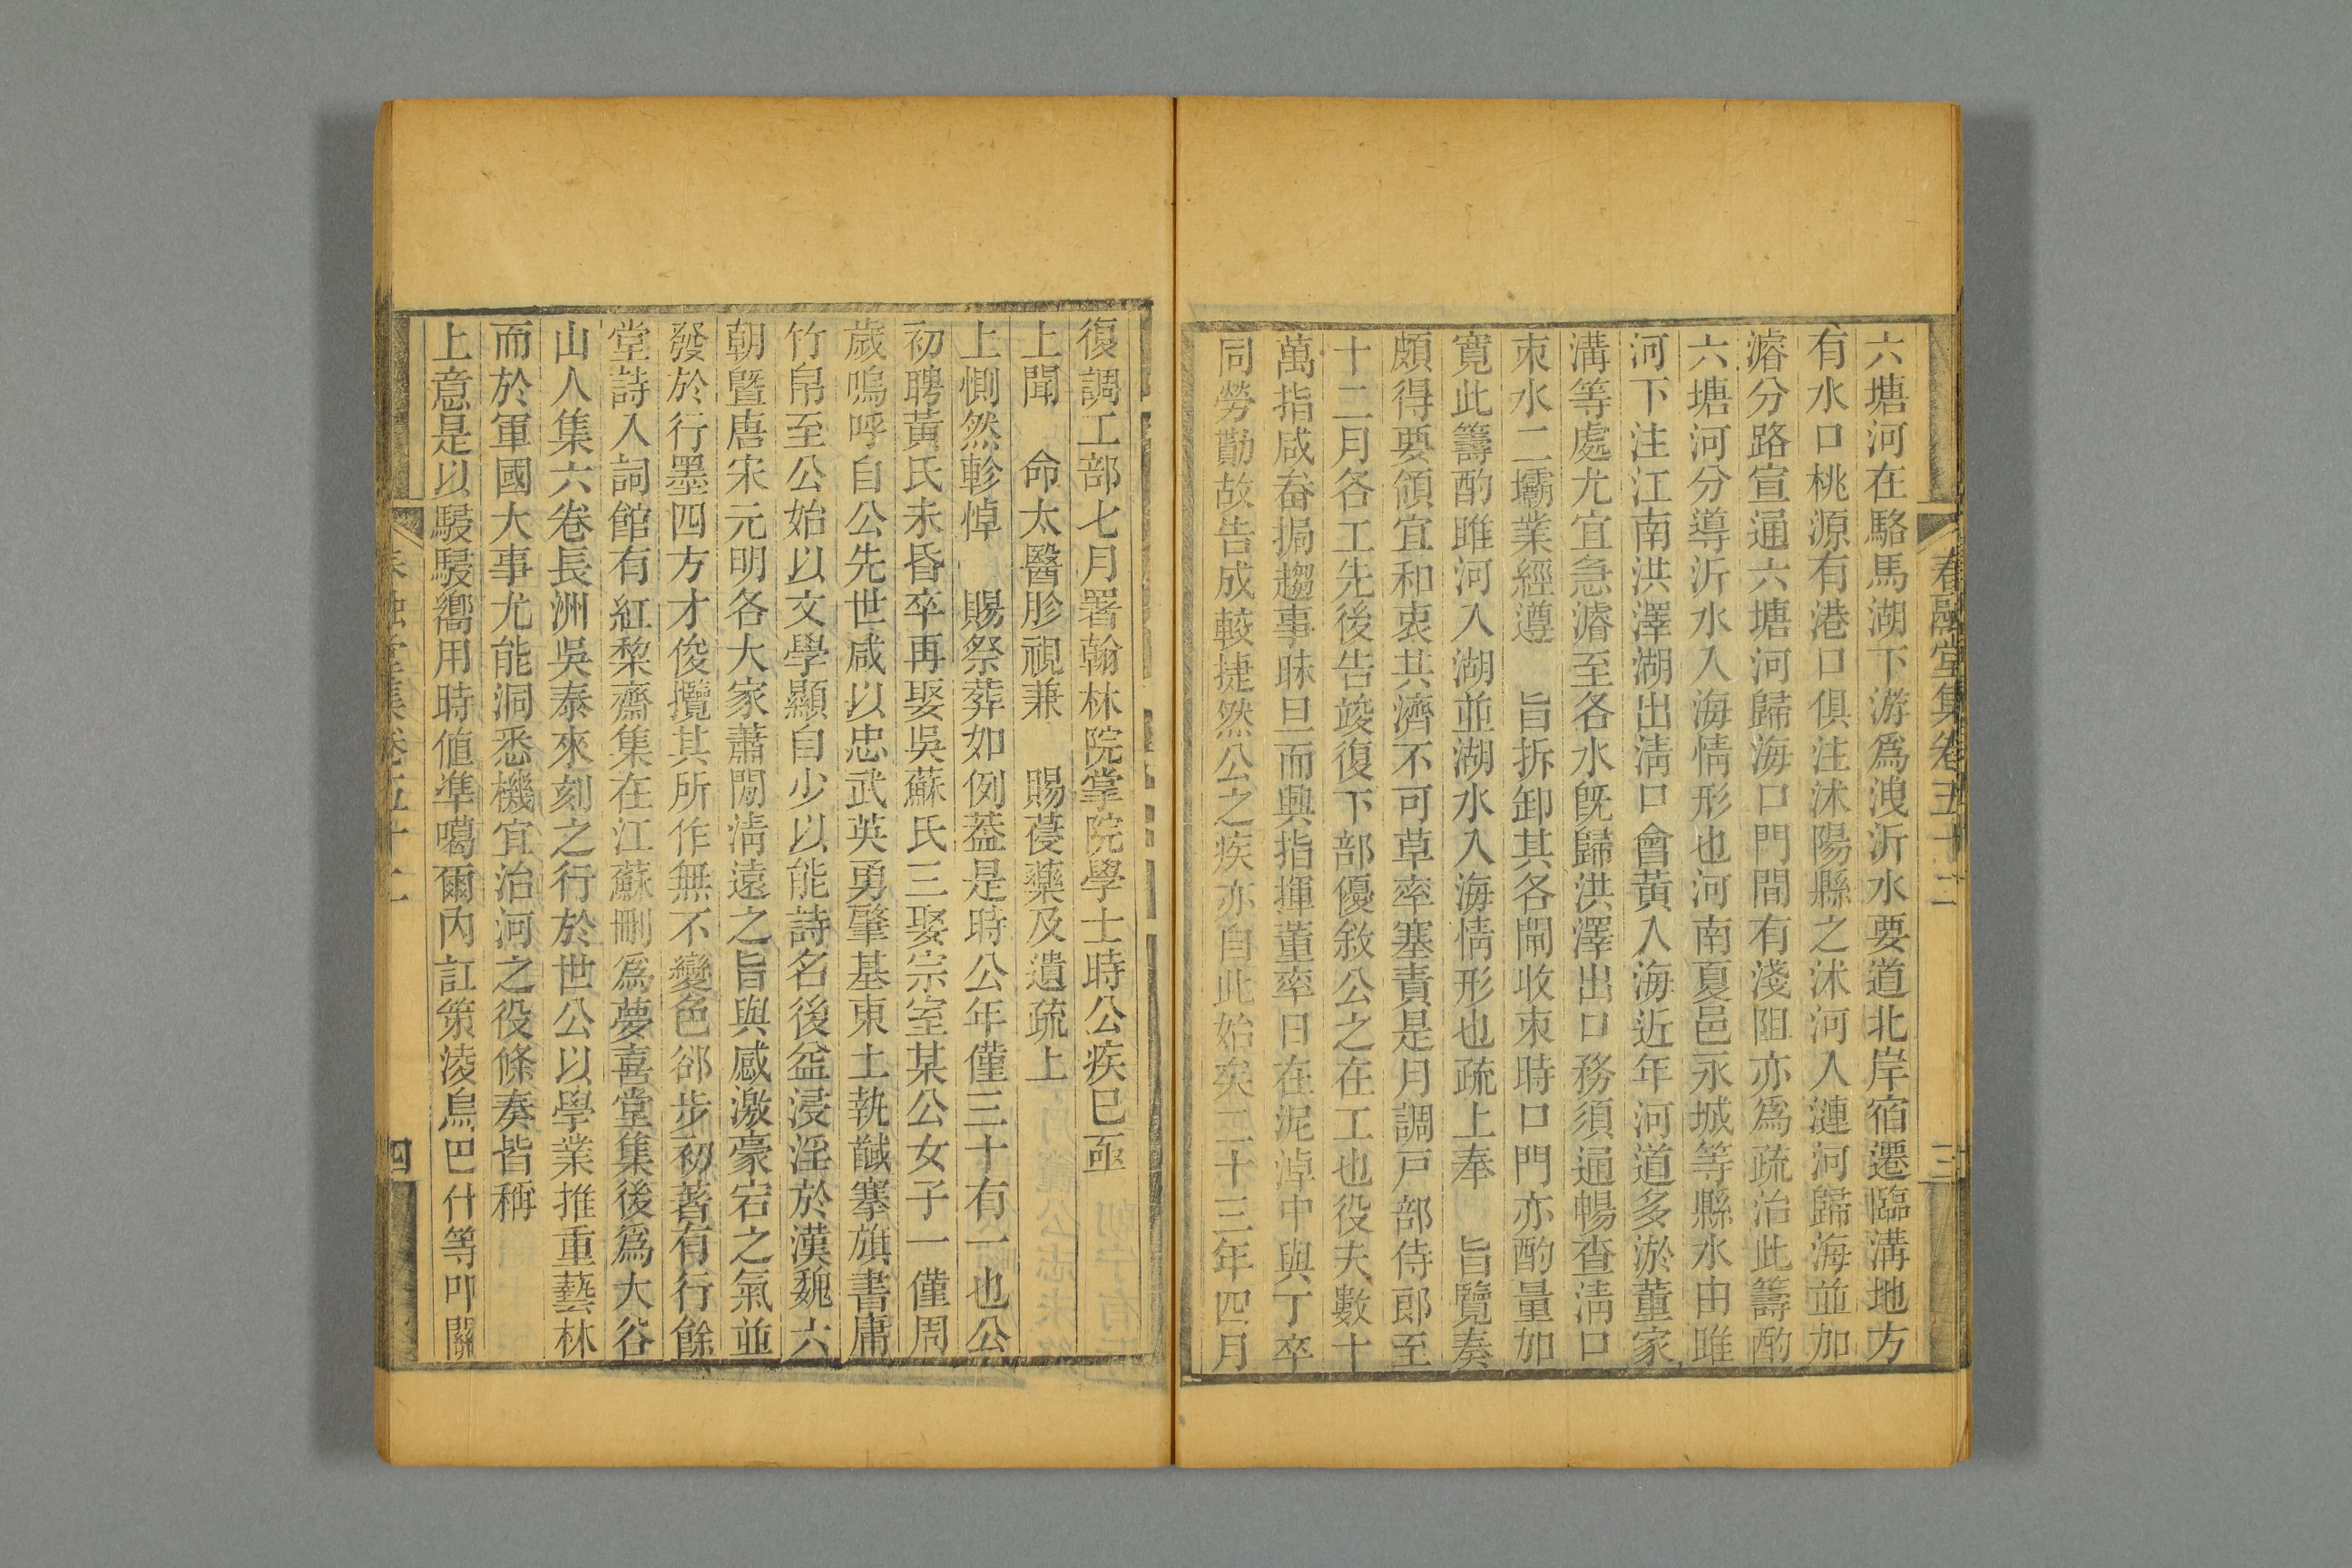 春融堂集卷五十二
三
六塘河在駱馬湖下游爲洩沂水要道北岸宿遷臨溝地方
有水口桃源有港口俱注沭陽縣之沭河入漣河歸海並加
濬分路宣通六塘河歸海口門間有淺阻亦爲疏治此籌酌
六塘河分導沂水入海情形也河南夏邑永城等縣水由睢
河下注江南洪澤湖出淸口會黃入海近年河道多淤董家
溝等處尤宜急濬至各水旣歸洪澤出口務須通暢查淸口
束水二壩業經遵　旨拆卸其各閘收束時口門亦酌量加
寬此籌酌睢河入湖並湖水入海情形也疏上奉　旨覽奏
頗得要領宜和衷共濟不可草率塞責是月調戸部侍郎至
十二月各工先後告竣復下部優敘公之在工也役夫數十
萬指咸奋挶趨事昧旦而興指揮董率日在泥淖中與丁卒
同勞勩故告成較捷然公之疾亦自此始矣二十三年四月
復調工部七月署翰林院掌院學士時公疾已亟
上聞　命太醫胗視兼　賜葠藥及遺疏上
上惻然軫悼　賜祭葬如例葢是時公年僅三十有一也公
初聘黃氏未昏卒再娶吳蘇氏三娶宗室某公女子一僅周
歲嗚呼自公先世咸以忠武英勇肇基東土執馘搴旗書庸
竹帛至公始以文學顯自少以能詩名後益浸淫於漢魏六
朝曁唐宋元明各大家蕭閒淸遠之旨與感激豪宕之氣並
發於行墨四方才俊攬其所作無不變色郤步初著有行餘
堂詩入詞館有紅棃齋集在江蘇刪爲夢喜堂集後爲大谷
山人集六卷長洲吳泰來刻之行於世公以學業推重藝林
而於軍國大事尤能洞悉機宜治河之役條奏皆稱
上意是以駸駸嚮用時値準噶爾內訌策淩烏巴什等叩關
春融堂集卷五十二
四